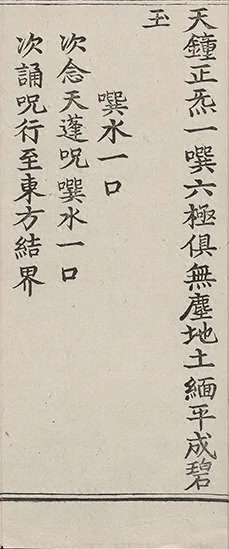 天鐘正炁一噀六極俱無塵地土緬平成碧
玉
噀水一口
次念天蓬呪噀水一口
次誦呪行至東方結界